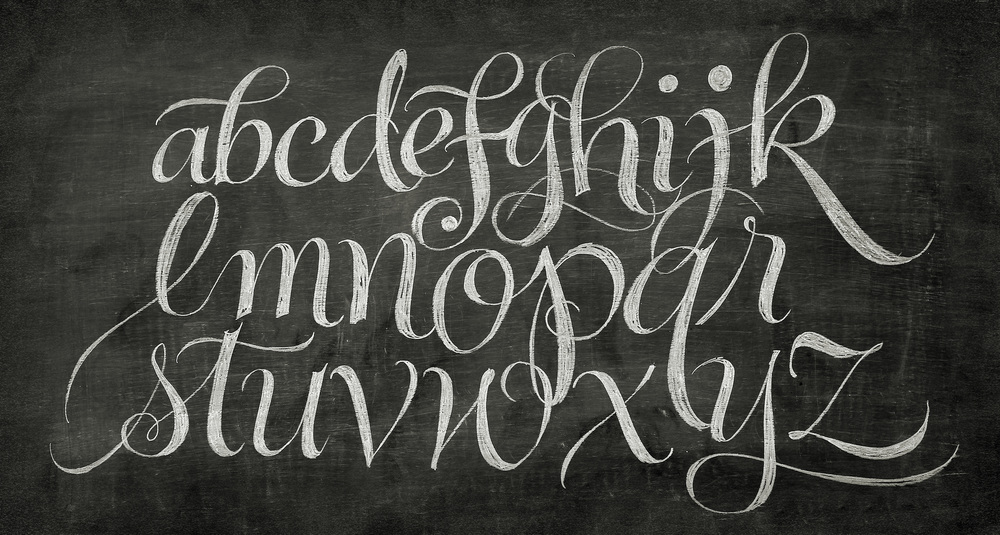 abcdefghijk
lmnopqr
stuvwxyz